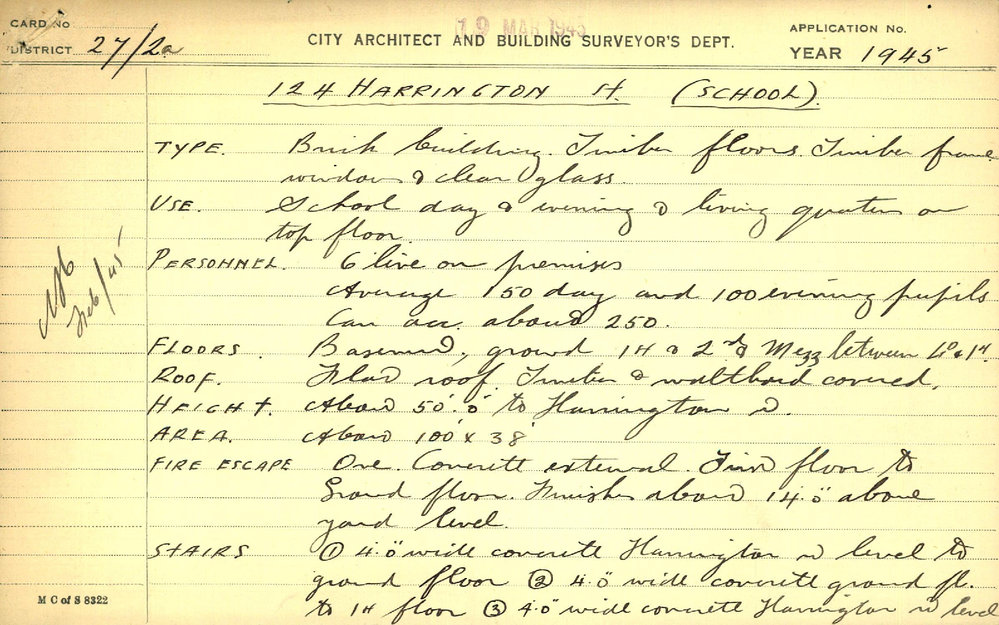 CARD No
DISTRICT 27/2a
19 MAR 1945
CITY ARCHITECT AND BUILDING SURVEYOR'S DEPT.
APPLICATION No.
YEAR 1945
124 HARRINGTON St. (SCHOOL).
TYPE. Brick building. Timber floors. Timber frame
windows & clear glass.
USE. School day & evening & living quarters on
top floor.
PERSONNEL. 6 live on premises
Average 150 day and 100 evening pupils
Can acc. about 250.
Feb/45
FLOORS. Basement, ground 1st & 2nd & Mezz between G & 1st.
ROOF. Flat roof. Timber & malthoid covered.
HEIGHT. About 50'.0" to Harrington St.
AREA. About 100' x 38'
FIRE ESCAPE One. Concrete external. First floor to
Ground floor. Finishes about 14'.0" above
yard level.
STAIRS ① 4'.0" wide concrete Harrington St level to
ground floor ② 4'.0" wide concrete ground fl.
to 1st floor ③ 4'.0" wide concrete Harrington St level
M C of S 8322